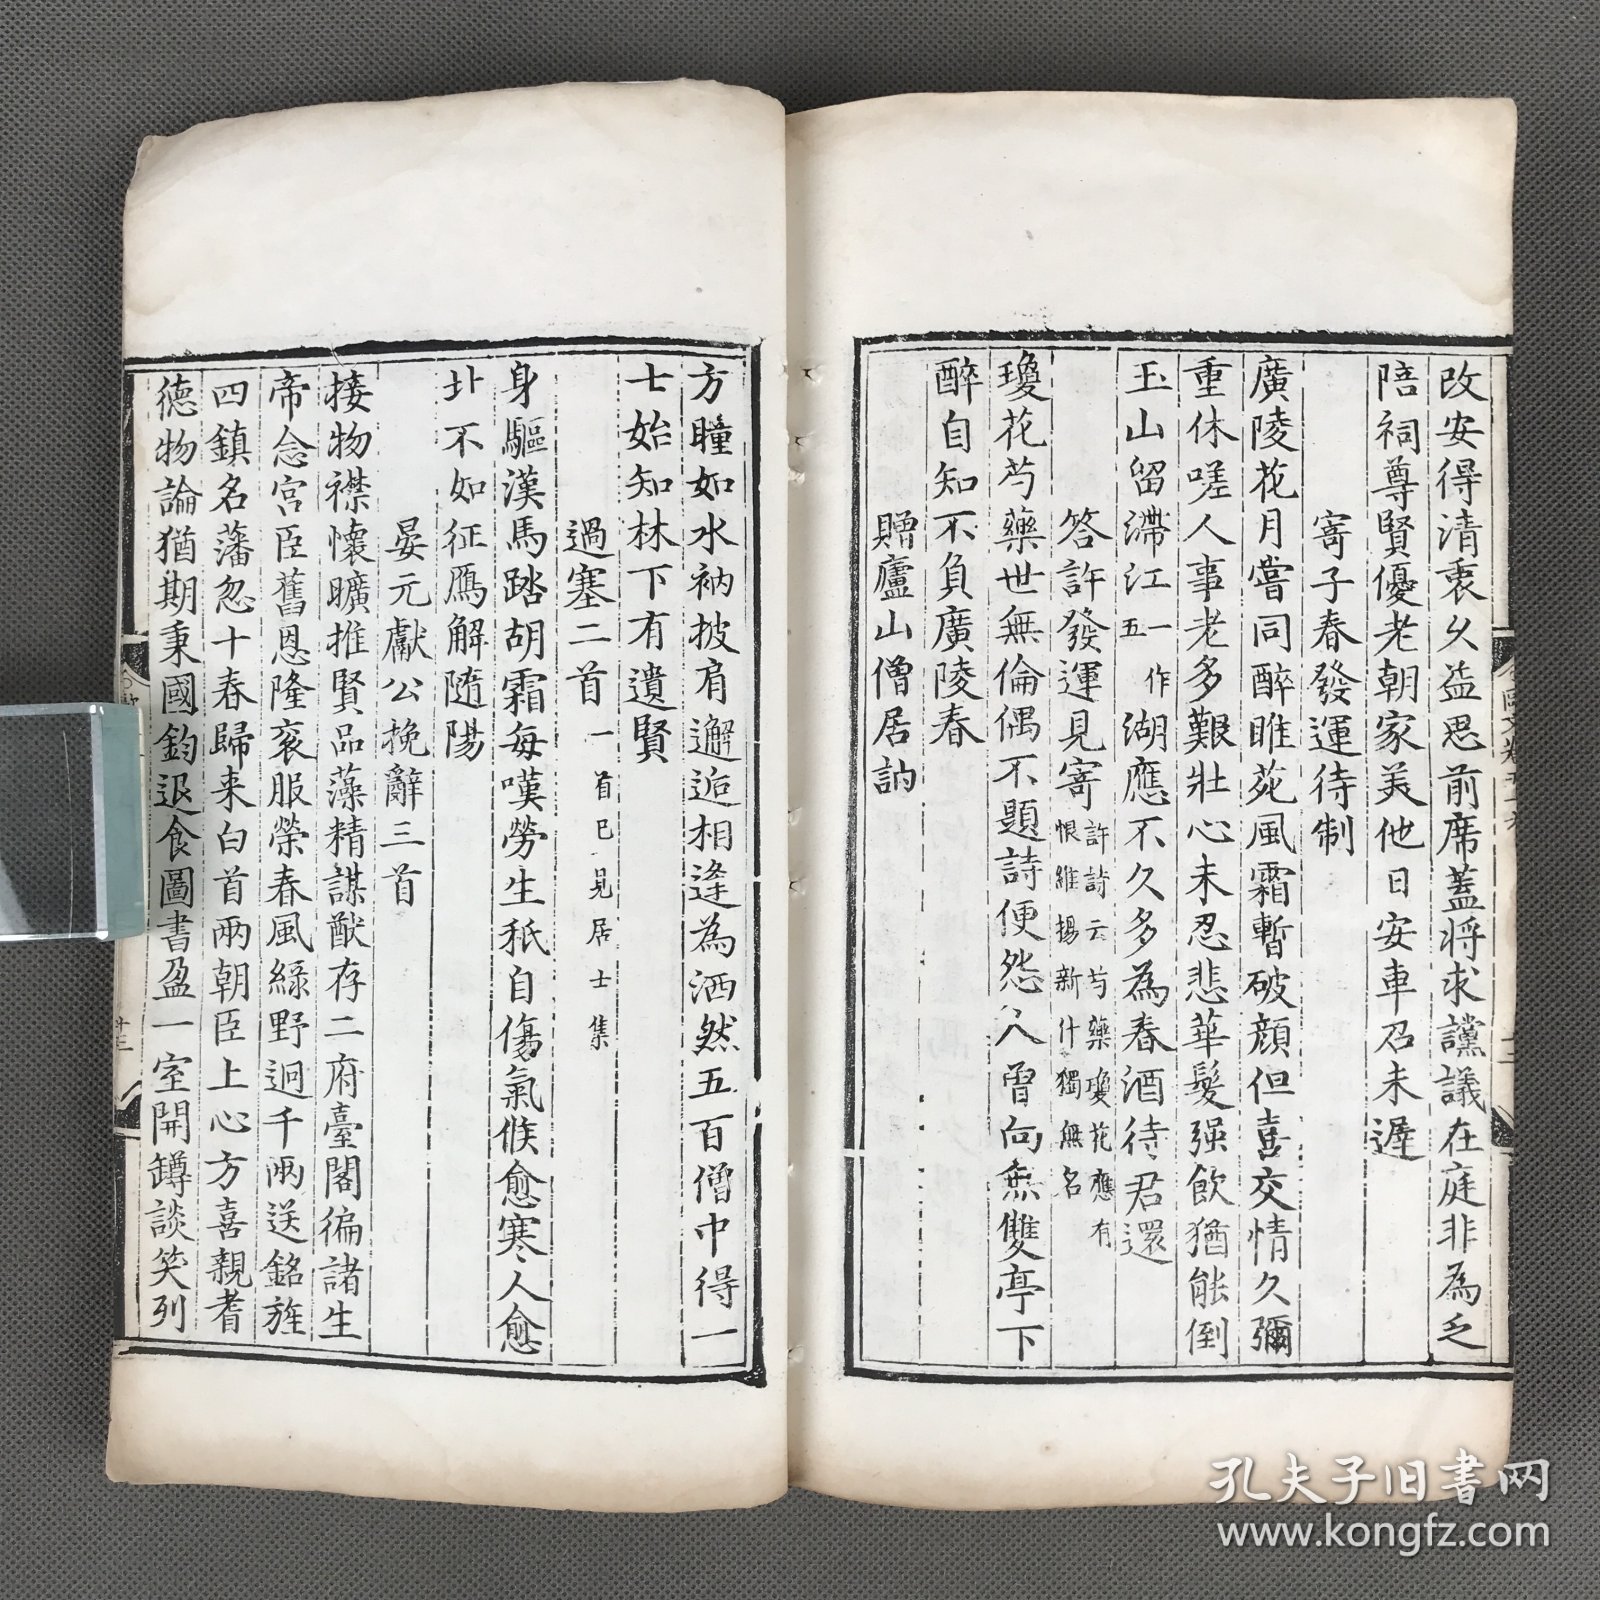 改安得清衷久益思前席蓋將求讜議在庭非為乏
陪祠尊賢優老朝家美他日安車召未遲
寄子春發運待制
廣陵花月嘗同醉睢苑風霜暫破顏但喜交情久彌
重休嗟人事老多艱壯心未忍悲華髮强飲猶能倒
玉山留滯江一作五湖應不久多為春酒待君還
答許發運見寄許詩云芍藥瓊花應有恨維揚新什獨無名
瓊花芍藥世無倫偶不題詩便怨人曾向無雙亭下
醉自知不負廣陵春
贈廬山僧居訥
方瞳如水衲披肩邂逅相逢為洒然五百僧中得一
士始知林下有遺賢
過塞二首一首已見居士集
身驅漢馬踏胡霜每嘆勞生秖自傷氣候愈寒人愈
北不如征鴈解隨陽
晏元獻公挽辭三首
接物襟懷曠推賢品藻精謀猷存二府臺閣徧諸生
帝念宮臣舊恩隆衮服榮春風綠野迥千兩送銘旌
四鎮名藩忽十春歸来白首兩朝臣上心方喜親耆
德物論猶期秉國鈞退食圖書盈一室開罇談笑列
孔夫子旧书网
www.kongfz.com